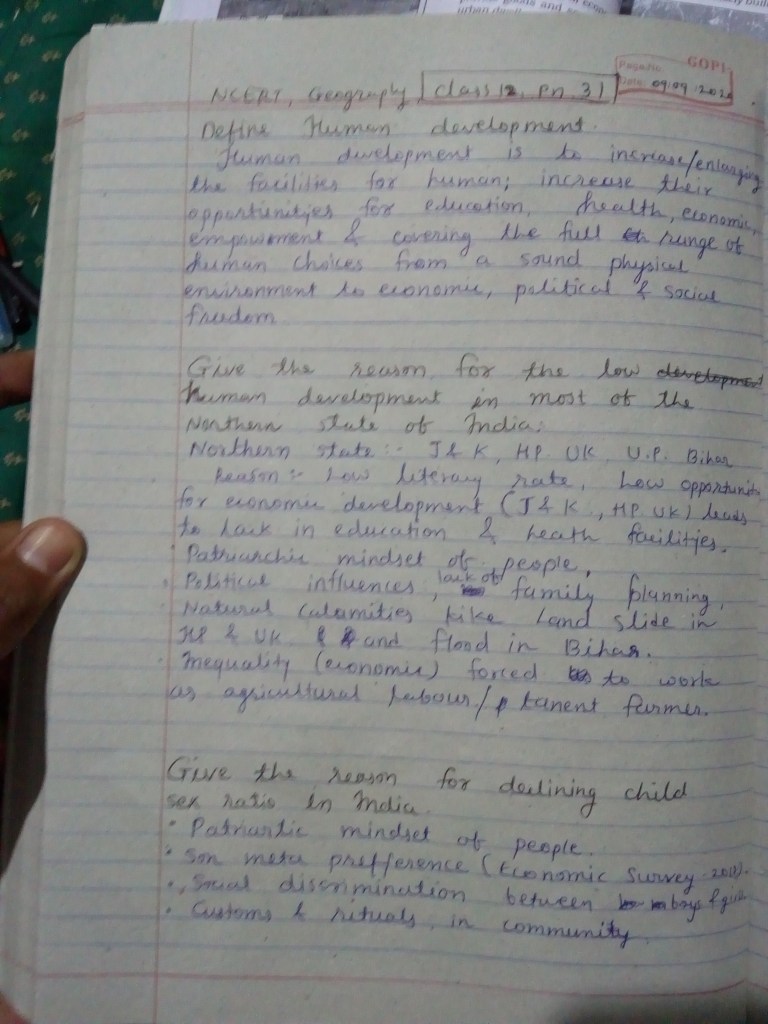 urban
GOPI
Page No.
Date: 09:09:202
NCERT, Geography class 12, pn 31
Define Human development.
Human development is to increase/enlarging
the facilities for human; increase their
opportunities for education, health, economic,
empowerment & covering the full range of
human choices from a sound physical
environment to economic, political & social
freedom
Give the reason for the low development
human development in most of the
Northern state of India.
Northern state:- J & K, HP UK, U.P. Bihar
Reason:- Low literary rate, Low opportunity
for economic development (J & K, HP UK) leads
to lack in education & heath facilities.
Patriarchic mindset of people,
Political influences, lack of family planning,
Natural calamities like Land slide in
HP & UK & and flood in Bihar.
Inequality (economic) forced to work
as agricultural labour/ tanent farmer.
Give the reason for declining child
sex ratio in India
• Patriartic mindset of people.
• Son meta prefference (Economic Survey 2018).
• Social discrimination between boys & girls
• Customs & rituals in community